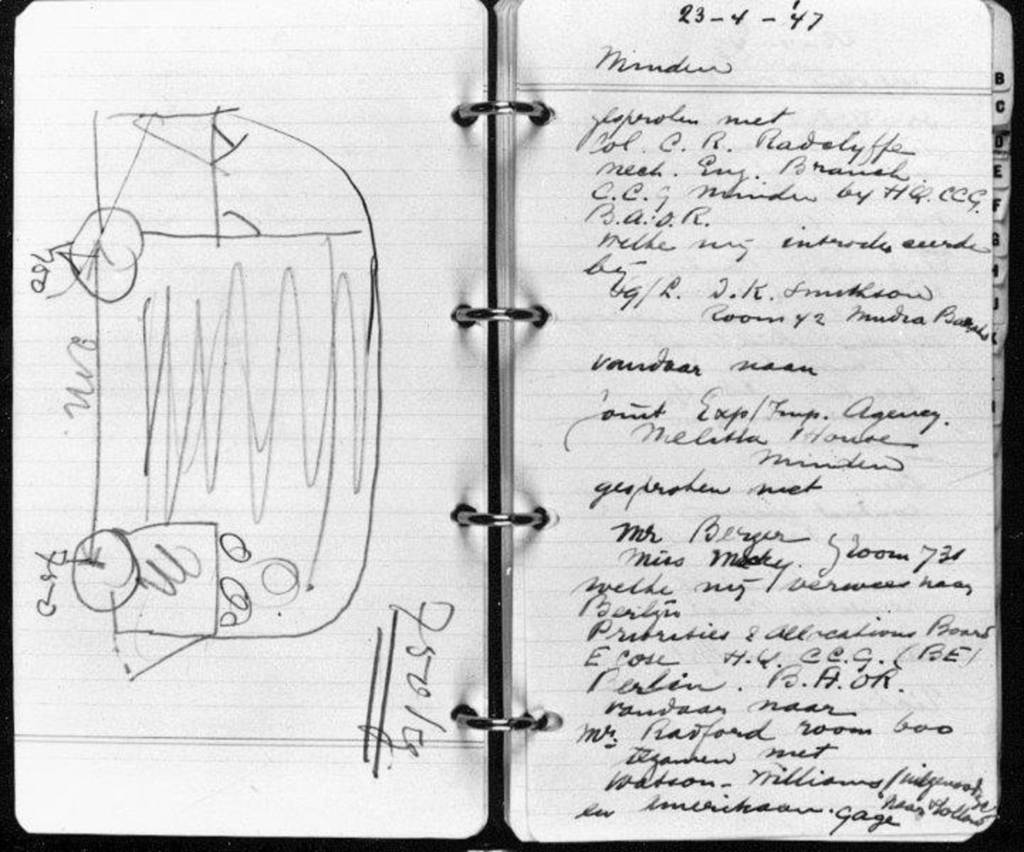 750
750
750 kg
23-4-'47
Minden
gesproken met
Col. C. R. Radclyffe
mech. Eng. Branch
C.C.G Minden by HQ. CCG,
B.A.O.R.
welke mij introduceerde
bij
Sq/L. D.K. Smithson
Room 42 Mudra Barracks
vandaar naar
Joint Exp/Imp. Agency.
Melitta House
Minden
gesproken met
Mr Berger
Miss room 731
welke mij verwees naar
Berlijn
Priorities & Allocations Board
E cose H.Q. C.C.G. (BE)
Berlin. B.A.OR.
vandaar naar
Mr. Radford room 600
tezamen met
Watson-Williams
naar Holland
en Amerikaan. Gage
B
C
D
E
F
G
H
J
K